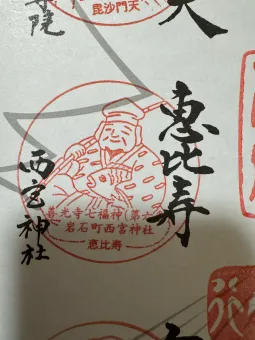 毘沙門天
恵比寿
善光寺七福神(第六
岩石町西宮神社
恵比寿
西宮神社